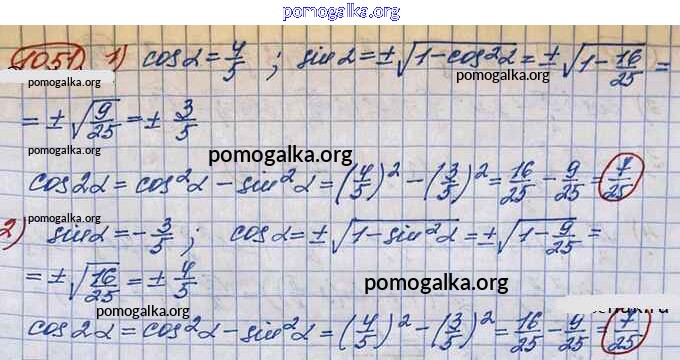 pomogalka.org
1051. 1) cosα = 4/5 ; sinα = ±√(1-cos²α) = ±√(1-16/25) =
pomogalka.org pomogalka.org
= ±√(9/25) = ± 3/5
pomogalka.org pomogalka.org
cos2α = cos²α - sin²α = (4/5)² - (3/5)² = 16/25 - 9/25 = 7/25
pomogalka.org
2) sinα = - 3/5 ; cosα = ±√(1-sin²α) = ±√(1-9/25) =
= ±√(16/25) = ± 4/5
pomogalka.org
pomogalka.org
cos2α = cos²α - sin²α = (4/5)² - (3/5)² = 16/25 - 9/25 = 7/25